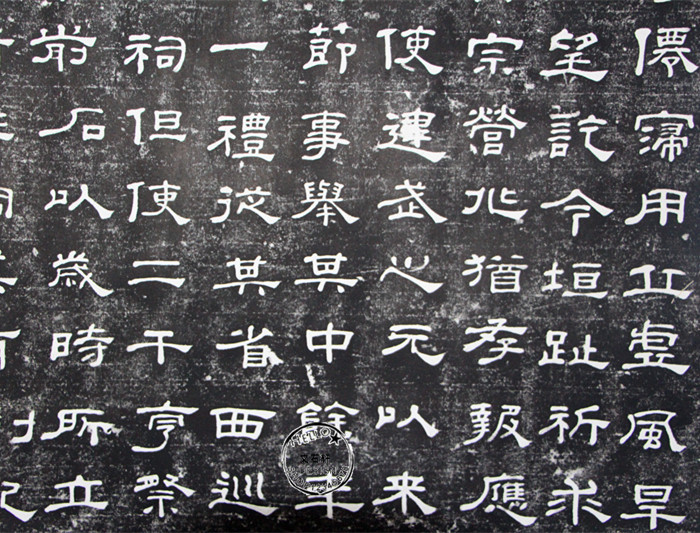 僊寖用丘虛風旱
望訖今垣趾祈求
宗營兆猶存報應
使建武之元以來
節事舉其中餘年
一禮從其省西巡
祠但使二千亨祭
前石以歲時所立